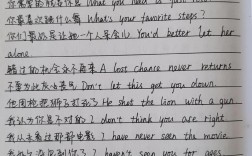 你需要的就是休息 What you need is just rest
你最喜欢跳什么舞 What's your favorite steps?
你们最好是让她一个人呆会儿 You'd better let her
alone.
错过的机会永不再来 A lost chance never returns
不要为此灰心丧气 Don't let this get you down.
他用枪把狮子打死了 He shot the lion with a gun
我认为你是不对的 I don't think you are right.
我从未看过那部电影 I have never seen the movie
I haven't seen you for ages.